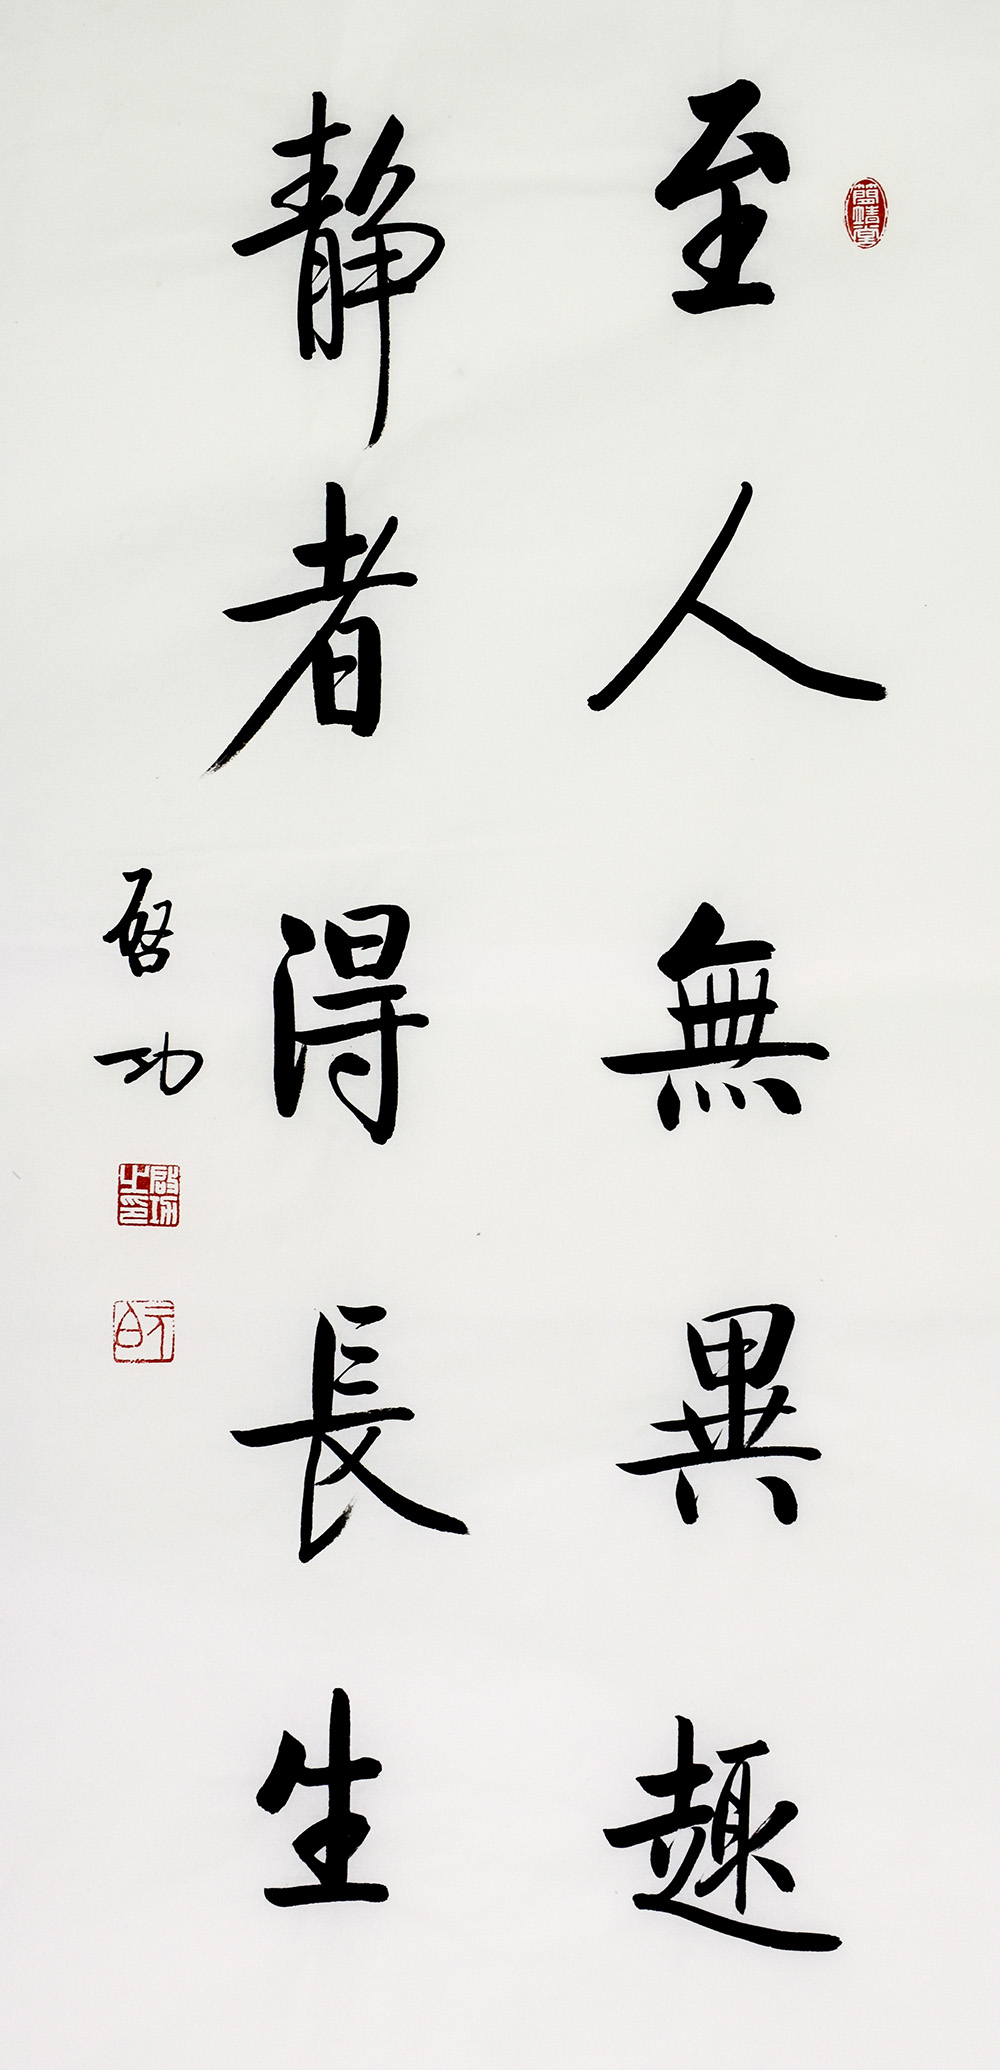 至人無異趣
靜者得長生
啓功
簡靖堂
啟功之印
元白